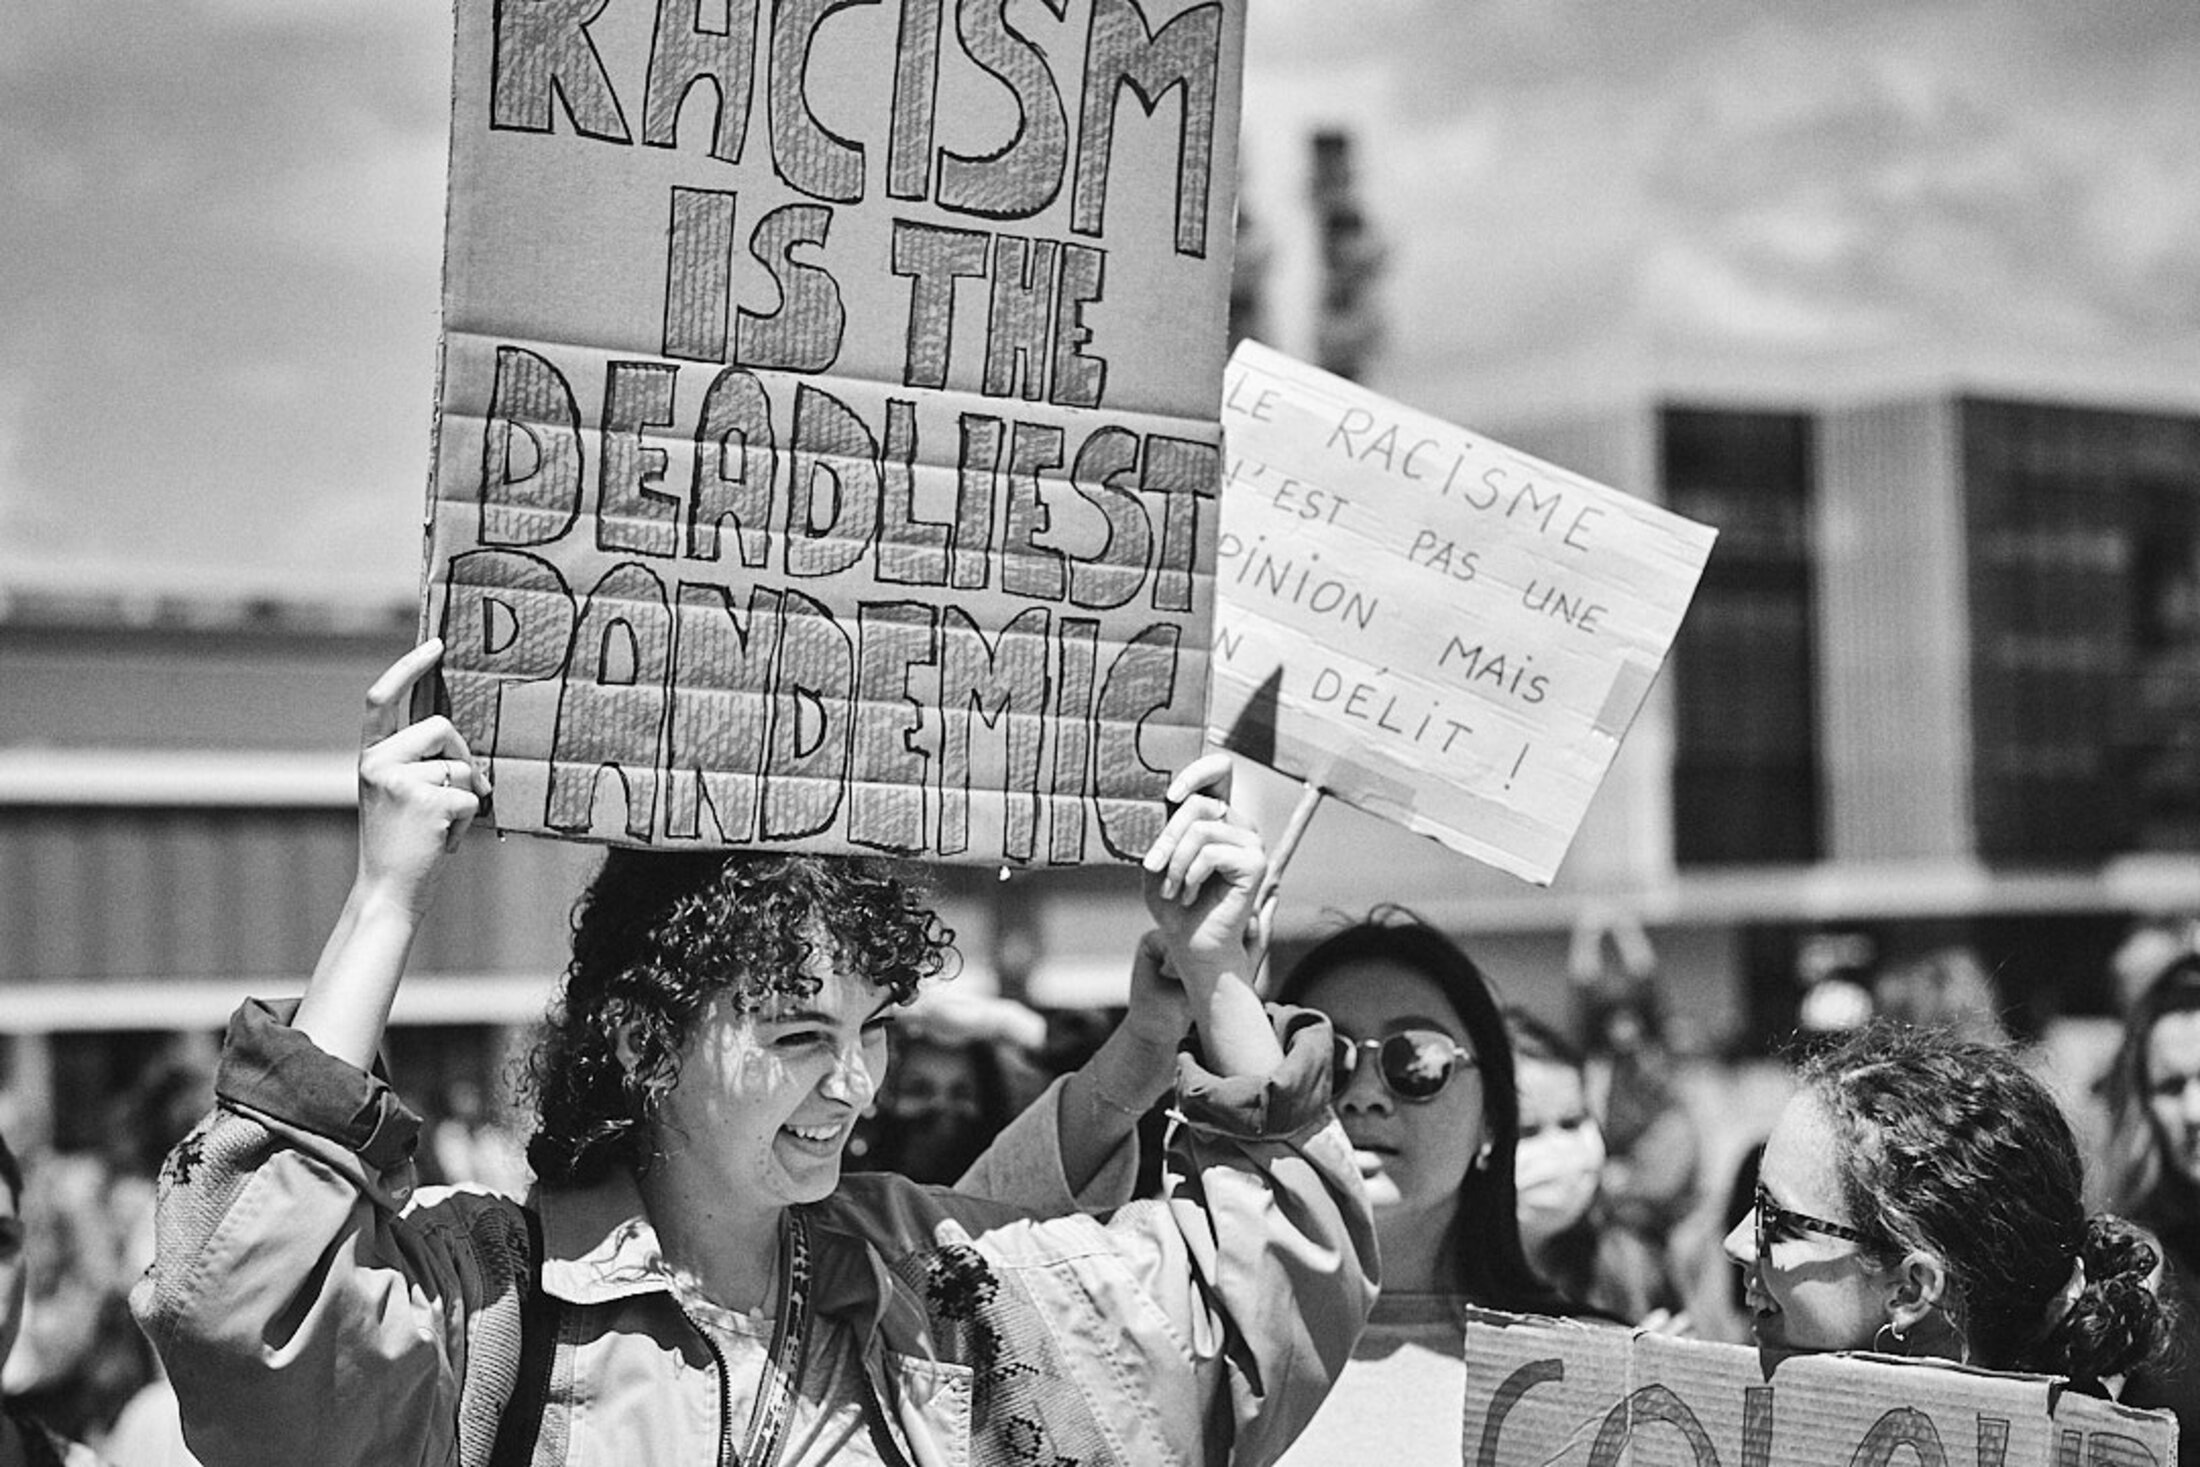 RACISM
IS THE
DEADLIEST
PANDEMIC
LE RACISME
N'EST PAS UNE
OPINION MAIS
UN DÉLIT !
COLOUR